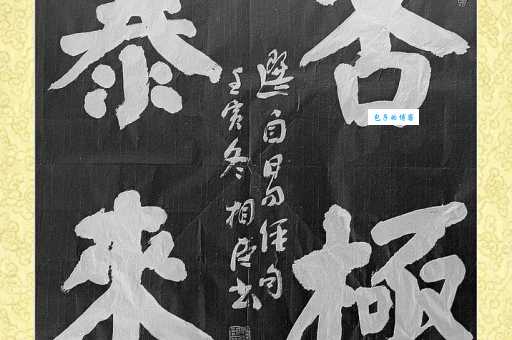 否極
泰來
選自易經句
壬寅冬 相書
包子的博客